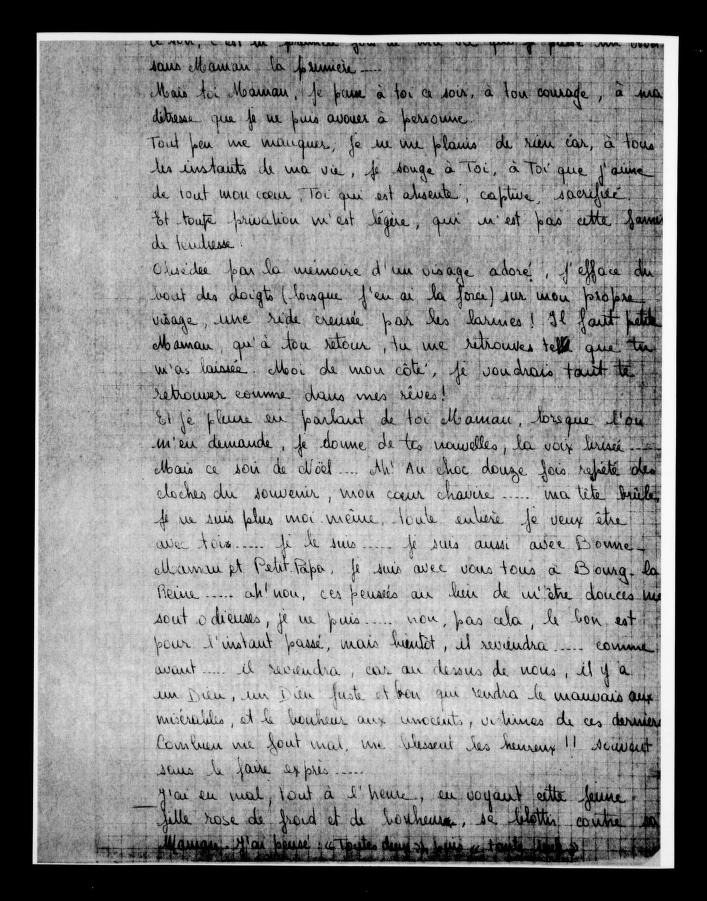 ce soir, c'est la première fois de ma vie que je passe un
sans Maman la première ....
Mais toi Maman, je pense à toi ce soir, à ton courage, à ma
détresse que je ne puis avouer à personne
Tout peu me manquer, je ne me plains de rien car, à tous
les instants de ma vie, je songe à Toi, à Toi que j'aime
de tout mon cœur, Toi qui est absente, captive, sacrifiée
Et toute privation m'est légère, qui n'est pas cette
de tendresse.
Obsédée par la mémoire d'un visage adoré, j'efface du
bout des doigts (lorsque j'en ai la force) sur mon propre
visage, une ride creusée par les larmes ! Il faut petite
Maman, qu'à ton retour, tu me retrouves telle que tu
m'as laissée. Moi de mon côté, je voudrais tant te
retrouver comme dans mes rêves !
Et je pleure en parlant de toi Maman, lorsque l'on
m'en demande, je donne de tes nouvelles, la voix brisée ....
Mais ce soir de Noël .... Ah ! Au choc douze fois répété des
cloches du souvenir, mon cœur chavire ..... ma tête brûle,
je ne suis plus moi même, toute entière je veux être
avec toi ..... je le suis ..... je suis aussi avec Bonne-
Maman et Petit-Papa, je suis avec vous tous à Bourg-la
Reine ..... ah ! non, ces pensées au lieu de m'être douces me
sont odieuses, je ne puis ..... non, pas cela, le bon est
pour l'instant passé, mais bientôt, il reviendra ..... comme
avant ..... il reviendra, car au dessus de nous, il y a
un Dieu, un Dieu juste et bon qui rendra le mauvais aux
misérables, et le bonheur aux innocents, victimes de ces derniers
Combien me font mal, me blessent les heureux !! souvent
sans le faire exprès .....
J'ai eu mal, tout à l'heure, en voyant cette jeune
fille rose de froid et de bonheur, se blottir contre sa
Maman. J'ai pensé : « Toutes deux » puis « toute seule »